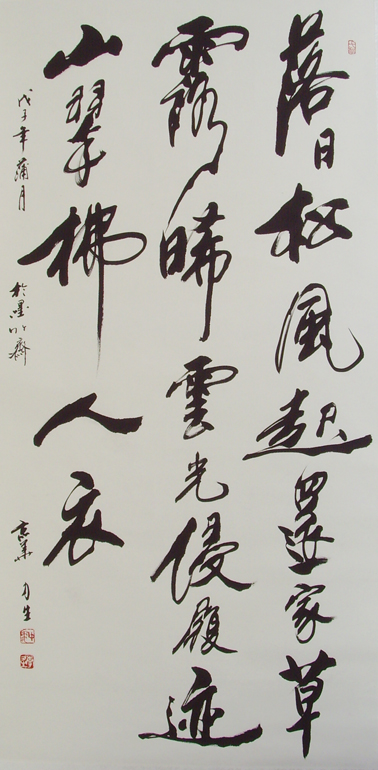 落日松風起還家草
露晞雲光侵履迹
山翠拂人衣
戊子年蒲月 於墨齋